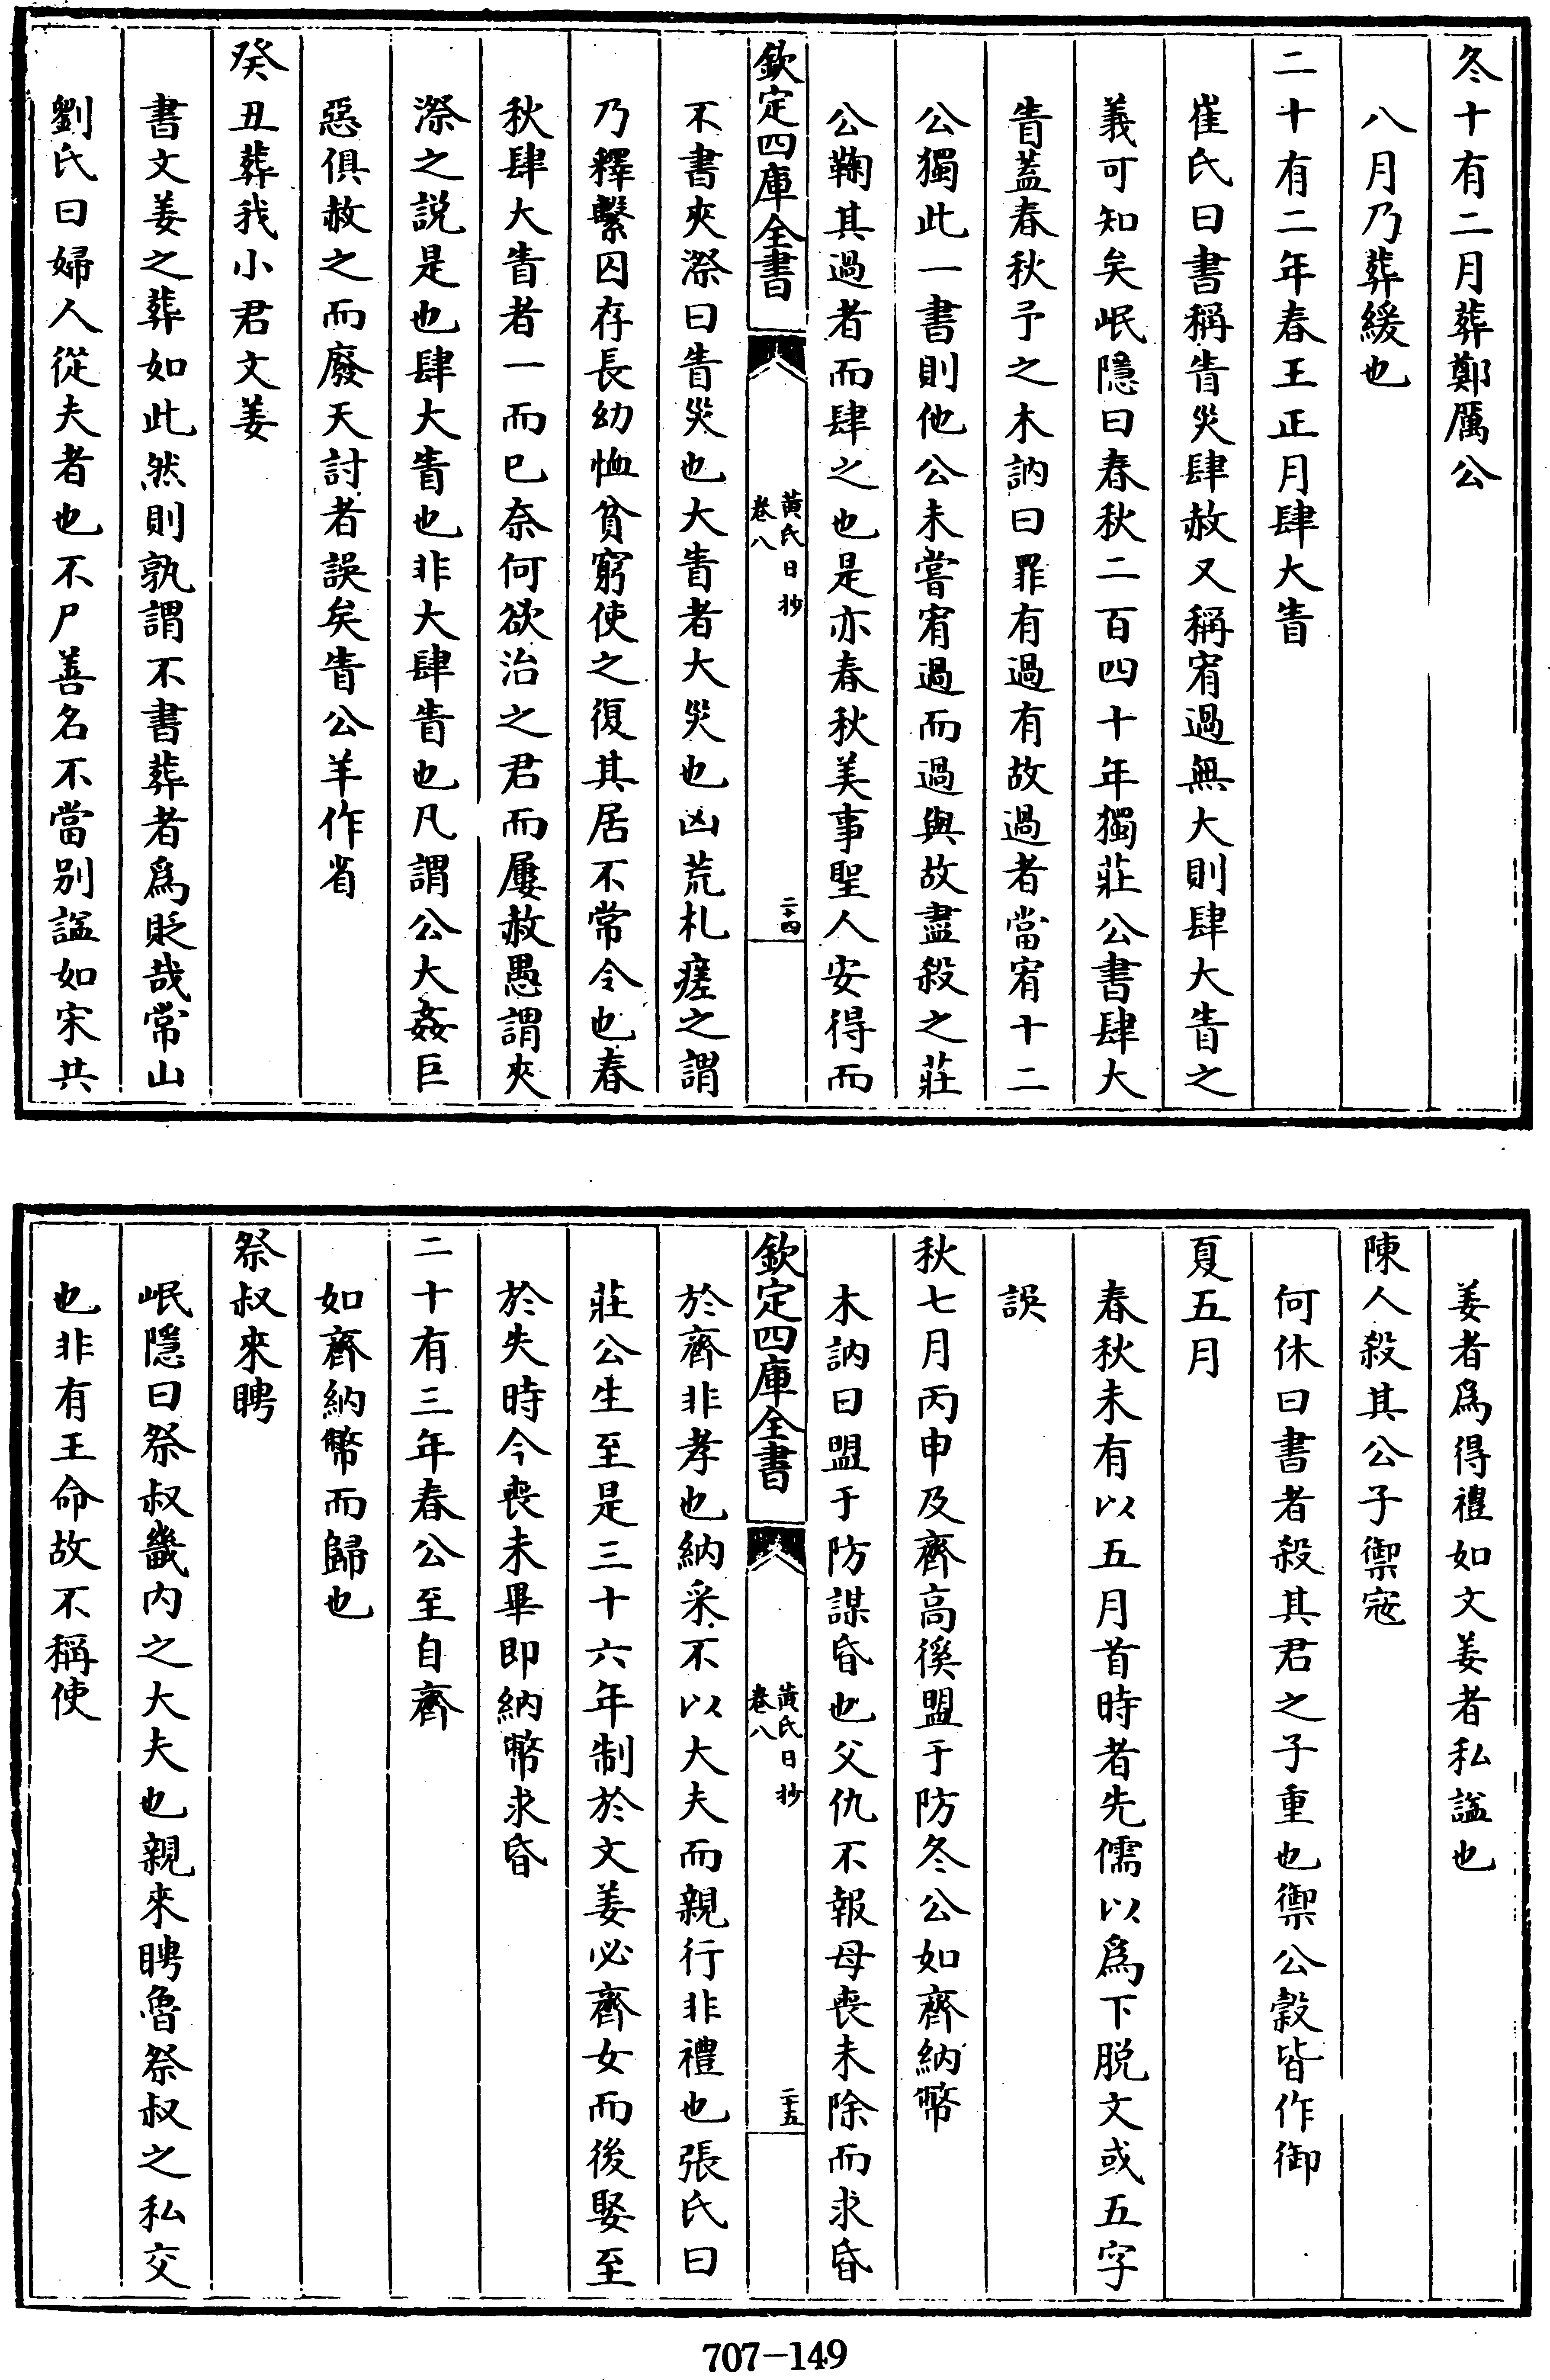 冬十有二月葬鄭厲公
八月乃葬緩也
二十有二年春王正月肆大眚
崔氏曰書稱眚災肆赦又稱宥過無大則肆大眚之
義可知矣岷隱曰春秋二百四十年獨莊公書肆大
眚蓋春秋予之木訥曰罪有過有故過者當宥十二
公獨此一書則他公未嘗宥過而過與故盡殺之莊
公鞠其過者而肆之也是亦春秋美事聖人安得而
欽定四庫全書
黃氏日抄
卷八
二十四
不書夾漈曰眚災也大眚者大災也凶荒札瘥之謂
乃釋繫囚存長幼恤貧窮使之復其居不常令也春
秋肆大眚者一而已奈何欲治之君而屢赦愚謂夾
漈之説是也肆大眚也非大肆眚也凡謂公大姦巨
惡俱赦之而廢天討者誤矣眚公羊作省
癸丑葬我小君文姜
書文姜之葬如此然則孰謂不書葬者爲貶哉常山
劉氏曰婦人從夫者也不尸善名不當别諡如宋共
姜者爲得禮如文姜者私諡也
陳人殺其公子禦寇
何休曰書者殺其君之子重也禦公穀皆作御
夏五月
春秋未有以五月首時者先儒以爲下脱文或五字
誤
秋七月丙申及齊高徯盟于防冬公如齊納幣
木訥曰盟于防謀昏也父仇不報母喪未除而求昏
欽定四庫全書
黃氏日抄
卷八
二十五
於齊非孝也納采不以大夫而親行非禮也張氏曰
莊公生至是三十六年制於文姜必齊女而後娶至
於失時今喪未畢即納幣求昏
二十有三年春公至自齊
如齊納幣而歸也
祭叔來聘
岷隱曰祭叔畿内之大夫也親來聘魯祭叔之私交
也非有王命故不稱使
707-149